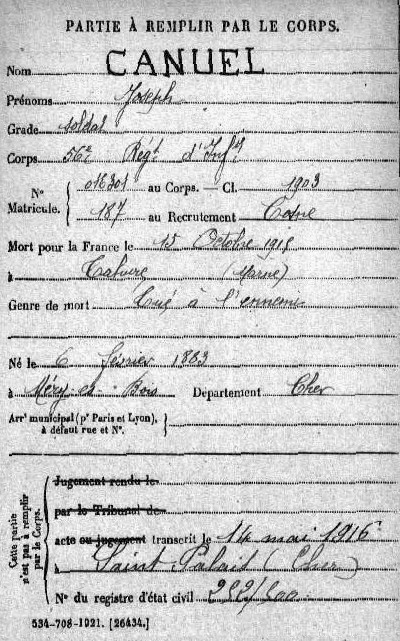 PARTIE À REMPLIR PAR LE CORPS.
Nom CANUEL
Prénoms Joseph
Grade soldat
Corps 56e Régt d'Inftie
No Matricule. { 016301 au Corps. — Cl. 1903
187 au Recrutement Cosne
Mort pour la France le 15 Octobre 1915
à Tahure (Marne)
Genre de mort Tué à l'ennemi
Né le 6 février 1883
à Méry-ès-Bois Département Cher
Arrt municipal (pr Paris et Lyon), à défaut rue et No. }
Cette partie n'est pas à remplir par le Corps.
Jugement rendu le
par le Tribunal de
acte ou jugement transcrit le 14 mai 1916
à Saint Palais (Cher)
No du registre d'état civil
534-708-1921. [26434.]